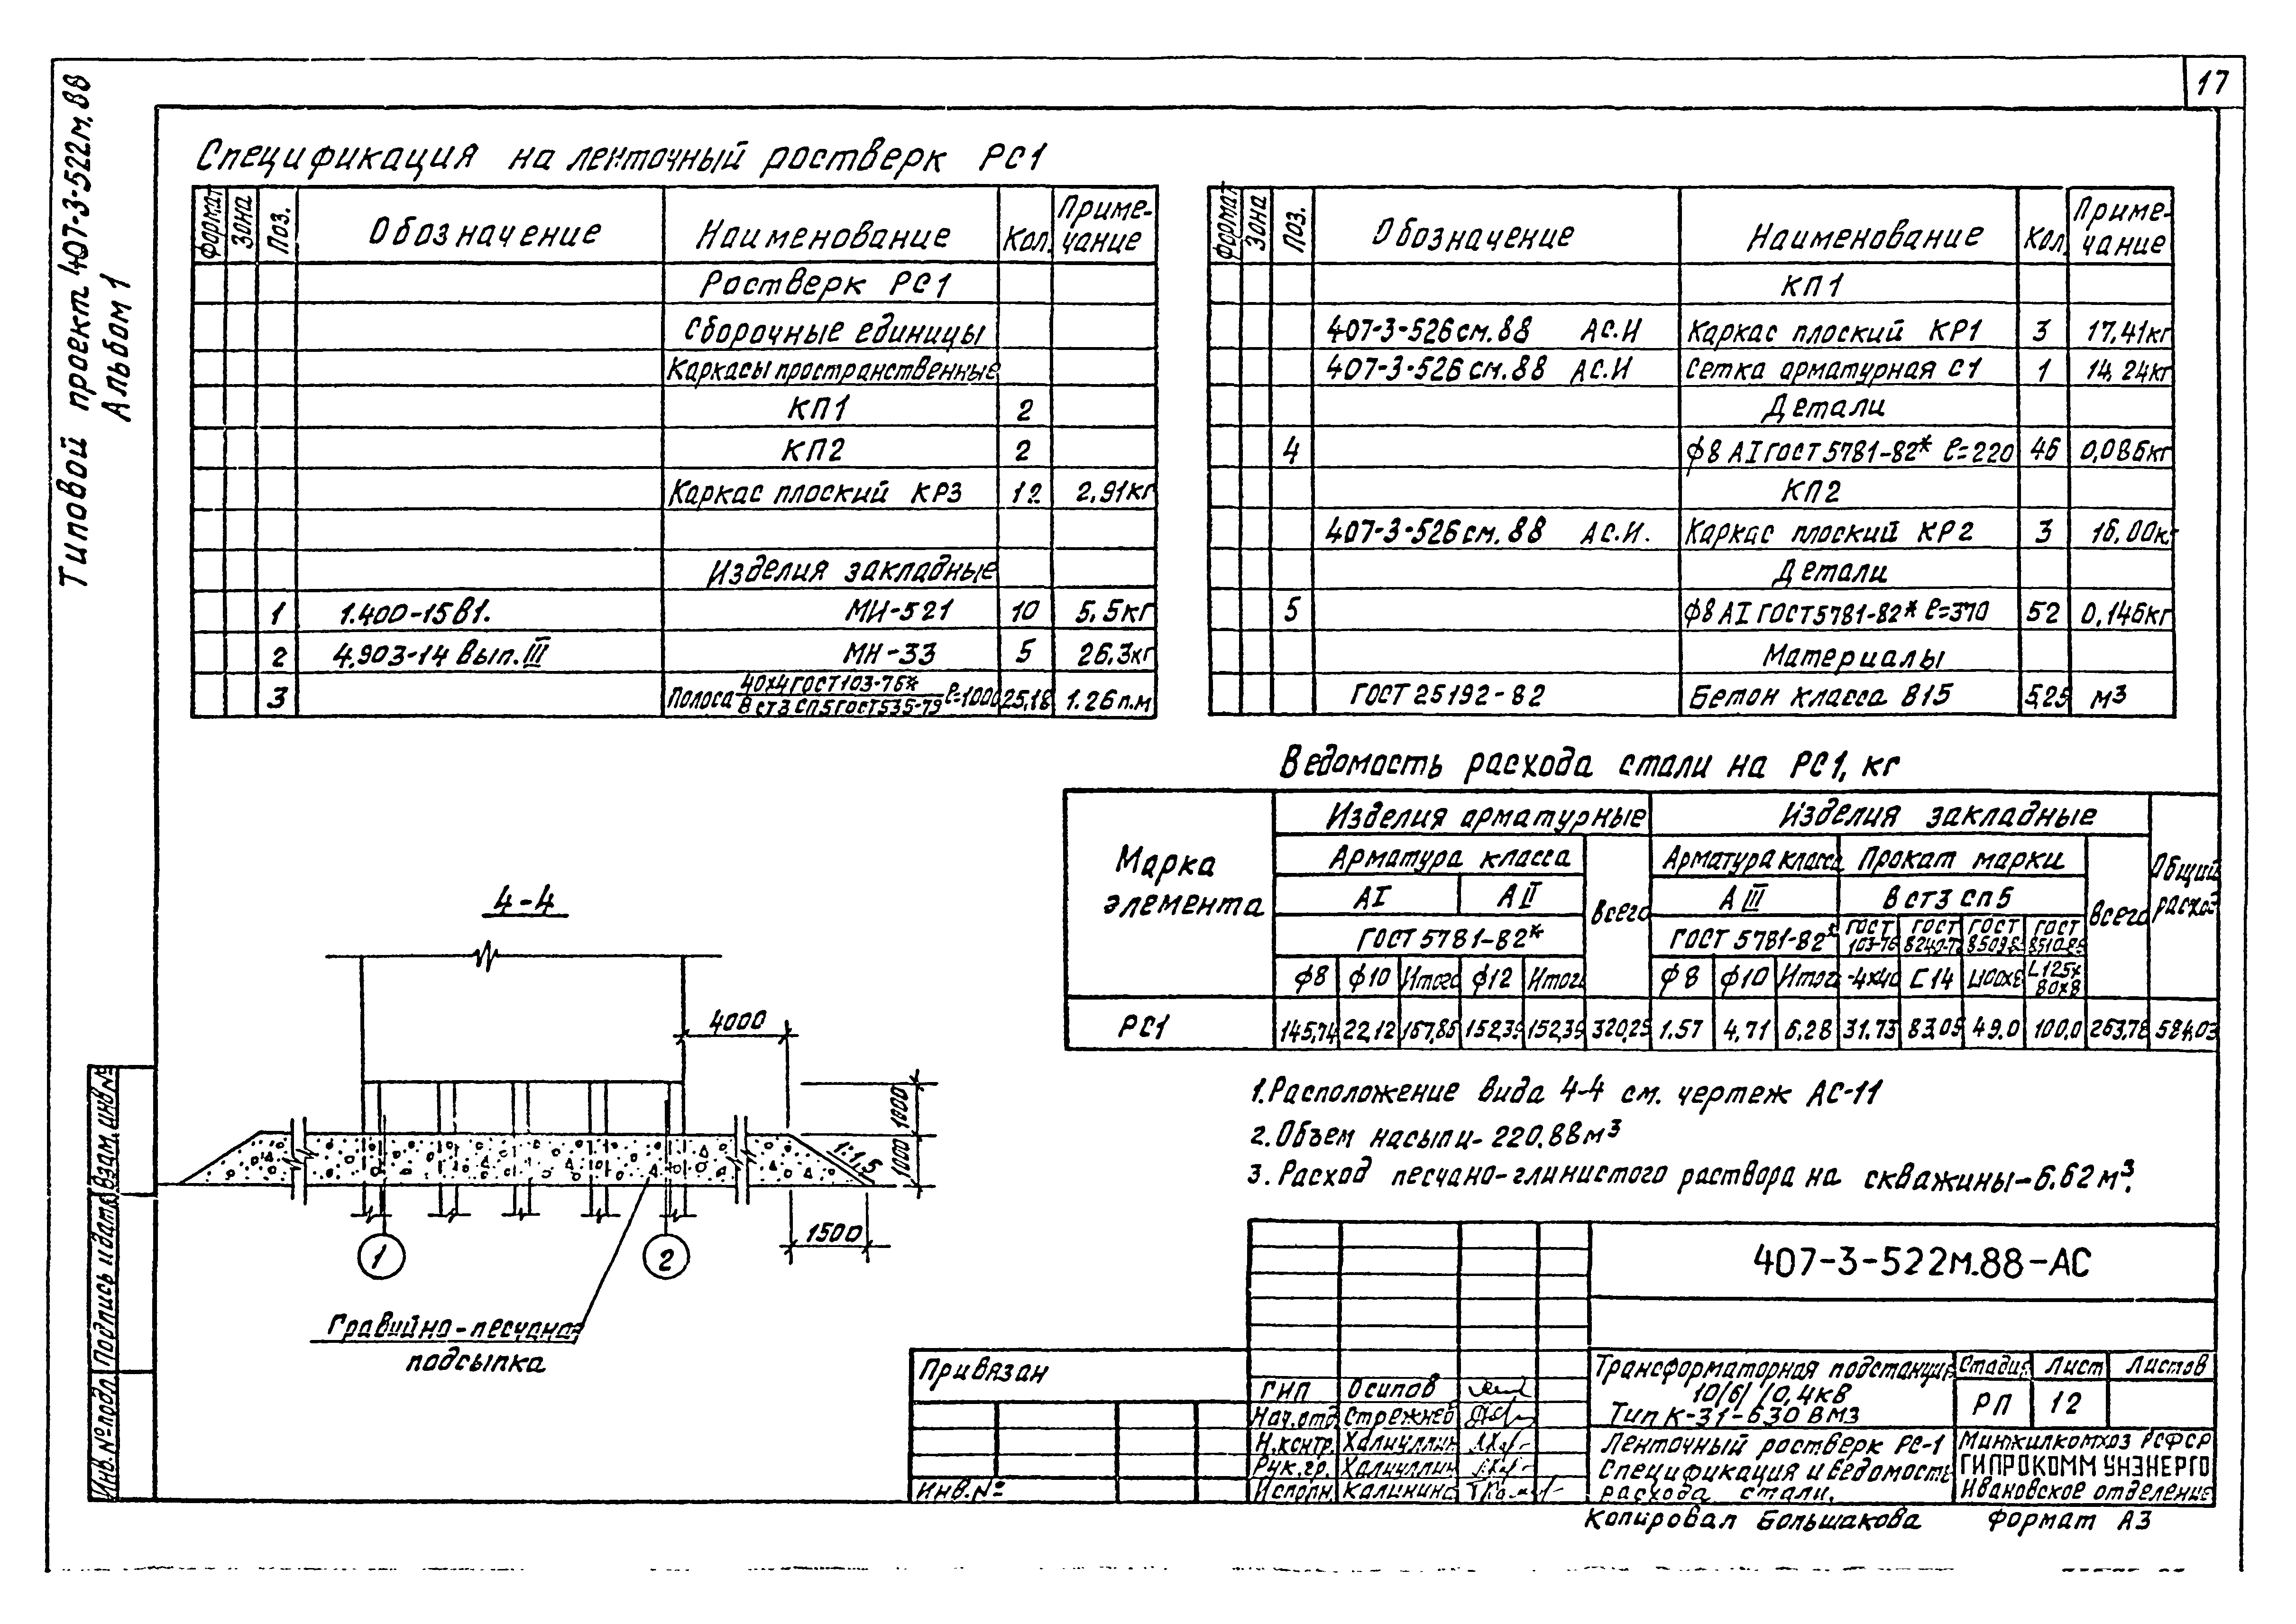 17
Типовой проект 407-3-522м.88
Альбом 1
Спецификация на ленточный ростверк РС1
формат Зона Поз. Обозначение Наименование Кол. Приме-чание
Ростверк РС1
Сборочные единицы
Каркасы пространственные
КП1 2
КП2 2
Каркас плоский КР3 12 2,91кг
Изделия закладные
1 1.400-15В1. МН-521 10 5,5кг
2 4.903-14 Вып. III МН-33 5 26,3кг
3 Полоса 40х4 ГОСТ 103-76* / В ст3 сп5 ГОСТ 535-79 ℓ=1000 25,18 1.26 п.м
формат Зона Поз. Обозначение Наименование Кол. Приме-чание
КП1
407-3-526см.88 АС.И Каркас плоский КР1 3 17,41кг
407-3-526см.88 АС.И Сетка арматурная С1 1 14,24кг
Детали
4 ф8 АI ГОСТ 5781-82* ℓ=220 46 0,086кг
КП2
407-3-526см.88 АС.И. Каркас плоский КР2 3 16,00к
Детали
5 ф8 АI ГОСТ 5781-82* ℓ=370 52 0,146кг
Материалы
ГОСТ 25192-82 Бетон класса В15 5,25 м3
Ведомость расхода стали на РС1, кг
Марка элемента Изделия арматурные Изделия закладные Общий расход
Арматура класса Всего Арматура класса Прокат марки Всего
АI АII АIII В ст3 сп5
ГОСТ 5781-82* ГОСТ 5781-82* ГОСТ 103-76 ГОСТ 8240-72 ГОСТ 8509-8 ГОСТ 8510-86
ф8 ф10 Итого ф12 Итого ф8 ф10 Итого -4х40 С14 L100х8 L125х80х8
РС1 145,74 22,12 167,86 152,39 152,39 320,25 1.57 4,71 6.28 31.73 83,05 49.0 100,0 263,78 584,03
4-4
4000
1000
1000
1:1,5
1500
1 2
Гравийно-песчаная
подсыпка
1. Расположение вида 4-4 см. чертеж АС-11
2. Объем насыпи- 220.88м3
3. Расход песчано-глинистого раствора на скважины-6.62м3.
Взам. инв №
Подпись и дата
Инв. № подл
407-3-522м.88-АС
Привязан
Инв. №
ГИП Осипов
Нач.отд Стрежнев
Н.контр. Халиуллин
Рук.гр. Халиуллин
Исполн. Калинина
Трансформаторная подстанция
10/6/ /0,4кв
Тип К-31-630 ВМ3
Стадия Лист Листов
РП 12
Ленточный ростверк РС-1
Спецификация и ведомость
расхода стали.
Минжилкомхоз РСФСР
ГИПРОКОММУНЭНЕРГО
Ивановское отделение
Копировал Большакова Формат А3